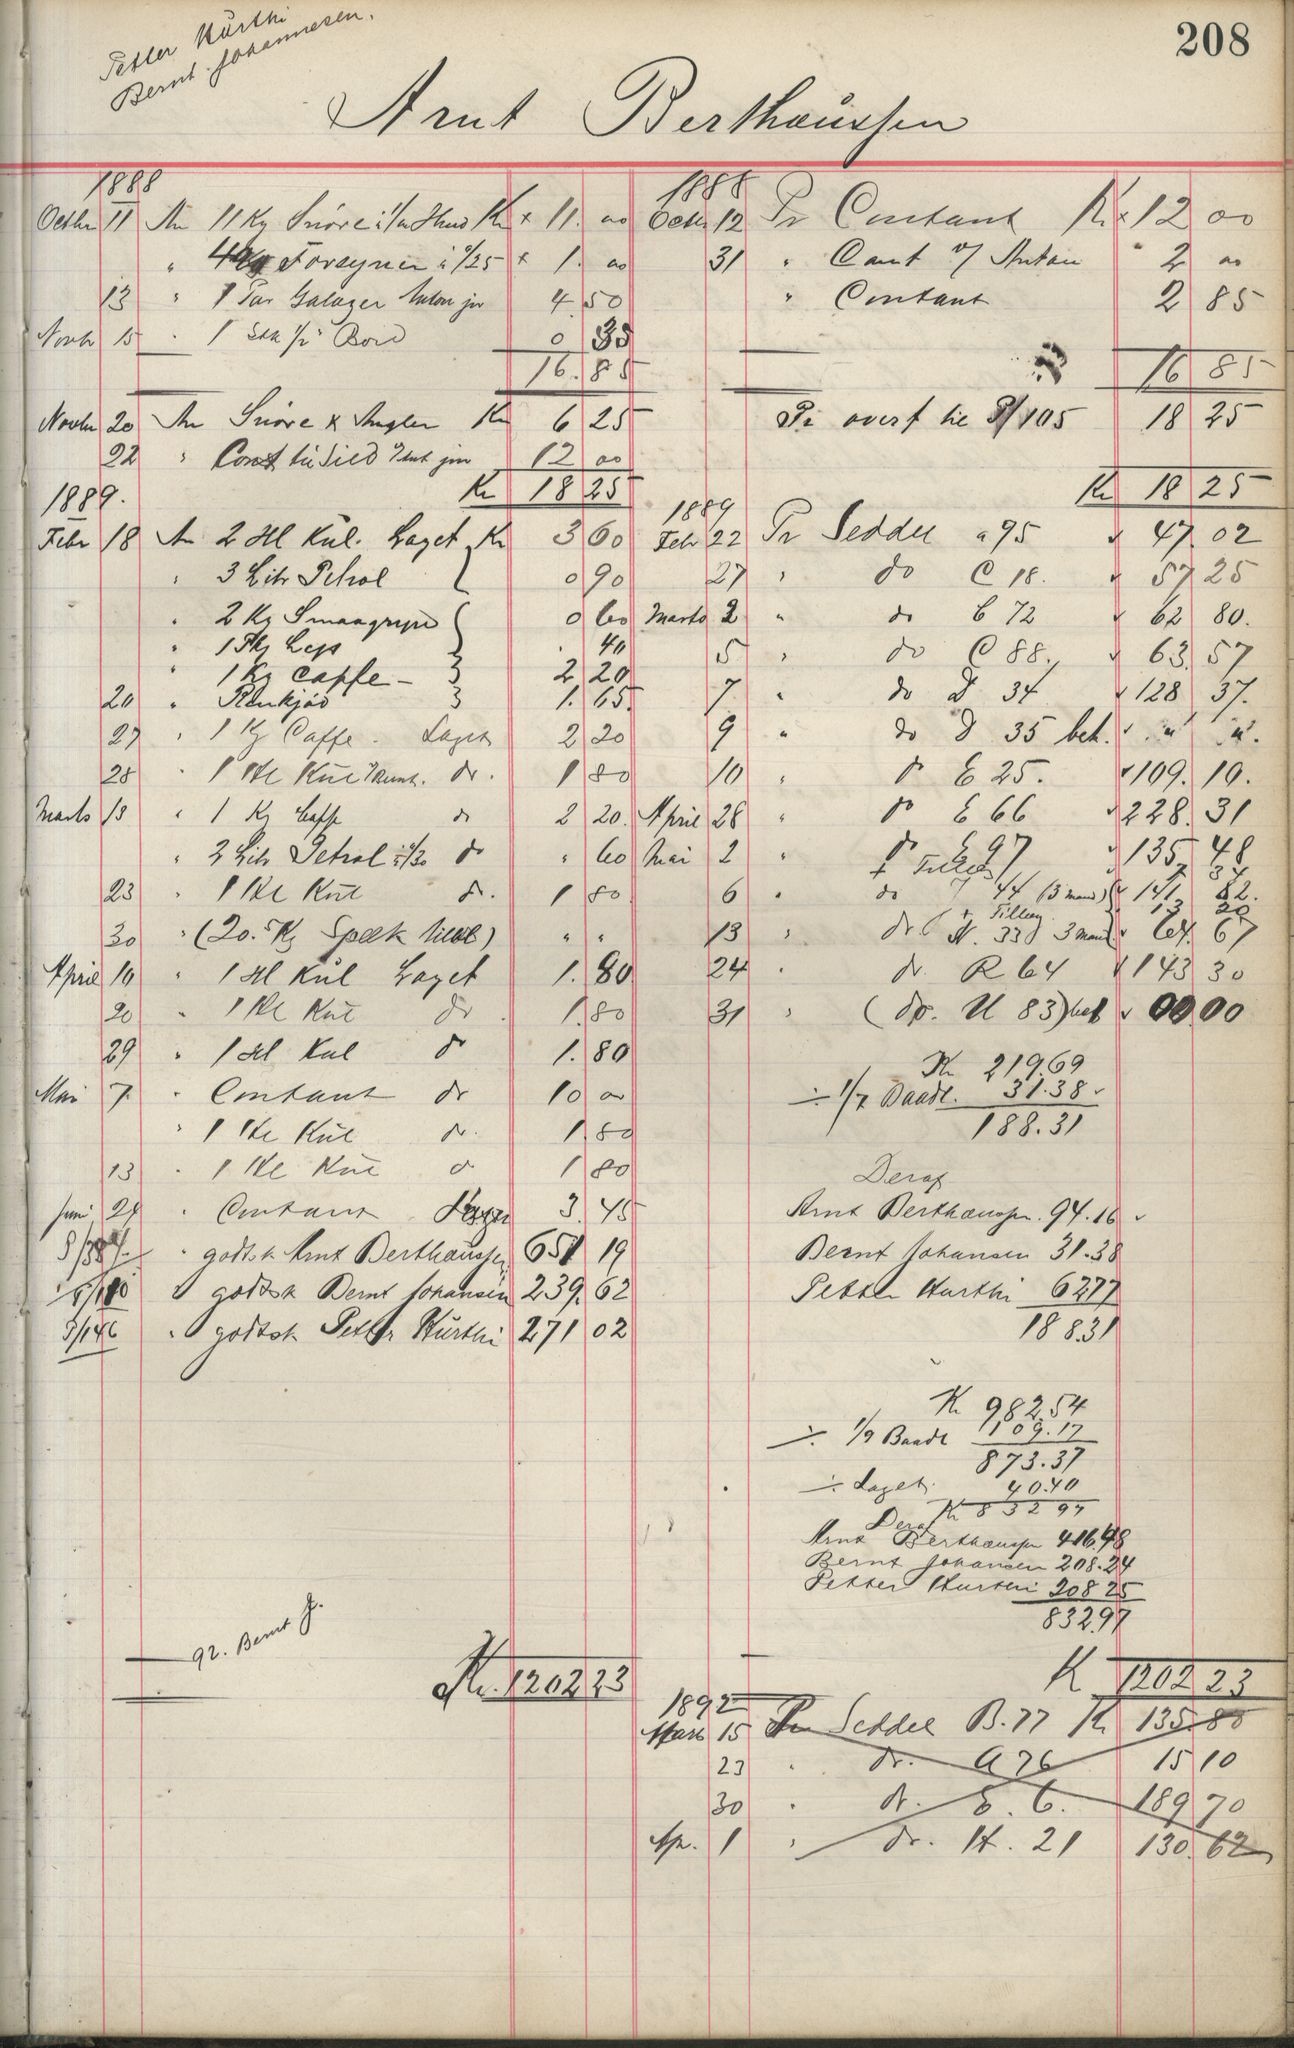 208
Petter Kurthi
Bernt Johannesen.
Arnt Berthaussen
1888
Octbr 11 An 11 Kg Snöre Kr 11. 00
" Forsyner à /25 1. 00
13 " 1 Par Galager Anton jn 4 50
Novbr 15 " 1 Stk Bord 0 35
16. 85
Novbr 20 An Snöre & Angler Kr 6 25
22 " Cont til Sild 12 00
Kr 18 25
1889.
Febr 18 An 2 Hl Kul. Laget Kr 3 60
" 3 Litr Petrol 0 90
" 2 Kg Smaagryn 0 60
" 40
" 1 Kg Caffe 2 20
20 " 1. 65.
27 " 1 Kg Caffe Laget 2 20
28 " 1 Hl Kul do. 1 80
Marts 13 " 1 Kg Caffe do 2 20.
" 2 Litr Petrol à /30 do " 60
23 " 1 Hl Kul do. 1 80
30 " (20.5 Kg Spæk) " "
April 10 " 1 Hl Kul Laget 1. 80
20 " 1 Hl Kul do 1. 80
29 " 1 Hl Kul do 1. 80
Mai 7. " Contant do 10 00
" 1 Hl Kul do. 1. 80
13 " 1 Hl Kul do 1 80
Juni 24 " Contant Laget 3. 45
" godtsk Arnt Berthaussen 651 19
" godtsk Bernt Johansen 239. 62
P/146 " godtsk Petter Kurthi 271 02
92. Bernt J.
Kr. 1202 23
1888
Octbr 12 Pr Contant Kr 12 00
31 " Cont v/ Anton 2 00
" Contant 2 85
16 85
Pr overf til P/105 18 25
Kr 18 25
1889
Febr 22 Pr Seddel a 95 47. 02
27 " do C 18. 57 25
Marts 2 " do C 72 62 80.
5 " do C 88. 63. 57
7 " do D 34 128 37.
9 " do D 35 bet. " "
10 " do E 25. 109. 10.
April 28 " do E 66 228. 31
Mai 2 " do E 97 135 48
+ Tillæg 7 34
6 " do 44 (3 mand) 141 82.
+ Tillæg 13 20
13 " do N. 33 3 mand 64. 67
24 " do. R 64 143 30
31 " (do. U 83) bet 00 00
Kr 219.69
÷ 1/7 Baadl. 31.38
188.31
Deraf
Arnt Berthaussen. 94.16
Bernt Johansen 31.38
Petter Kurthi 62 77
188.31
Kr 982.54
÷ 1/9 Baadl 109.17
873.37
÷ Laget 40.40
Kr 832 97
Deraf
Arnt Berthaussen 416.48
Bernt Johansen 208.24
Petter Kurthi 208 25
832.97
Kr 1202 23
1892
Marts 15 Pr Seddel B. 77 Kr 135. 80
23 " do. a 76 15 10
30 " do. E. 6. 189 70
Ap. 1 " do. H. 21 130. 62